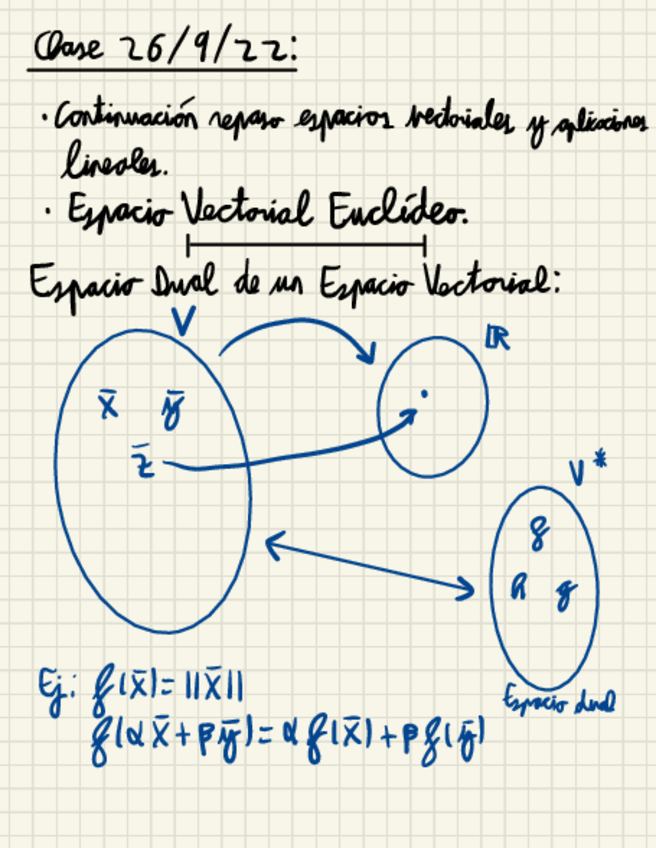 Clase 26/9/22:
· Continuación repaso espacios vectoriales y aplicaciones
lineales.
· Espacio Vectorial Euclídeo.
Espacio Dual de un Espacio Vectorial:
V
ℝ
x̄ ȳ
z̄
V*
f
h g
Espacio dual
Ej: f(x̄)=||x̄||
f(αx̄+βȳ)=αf(x̄)+βf(ȳ)